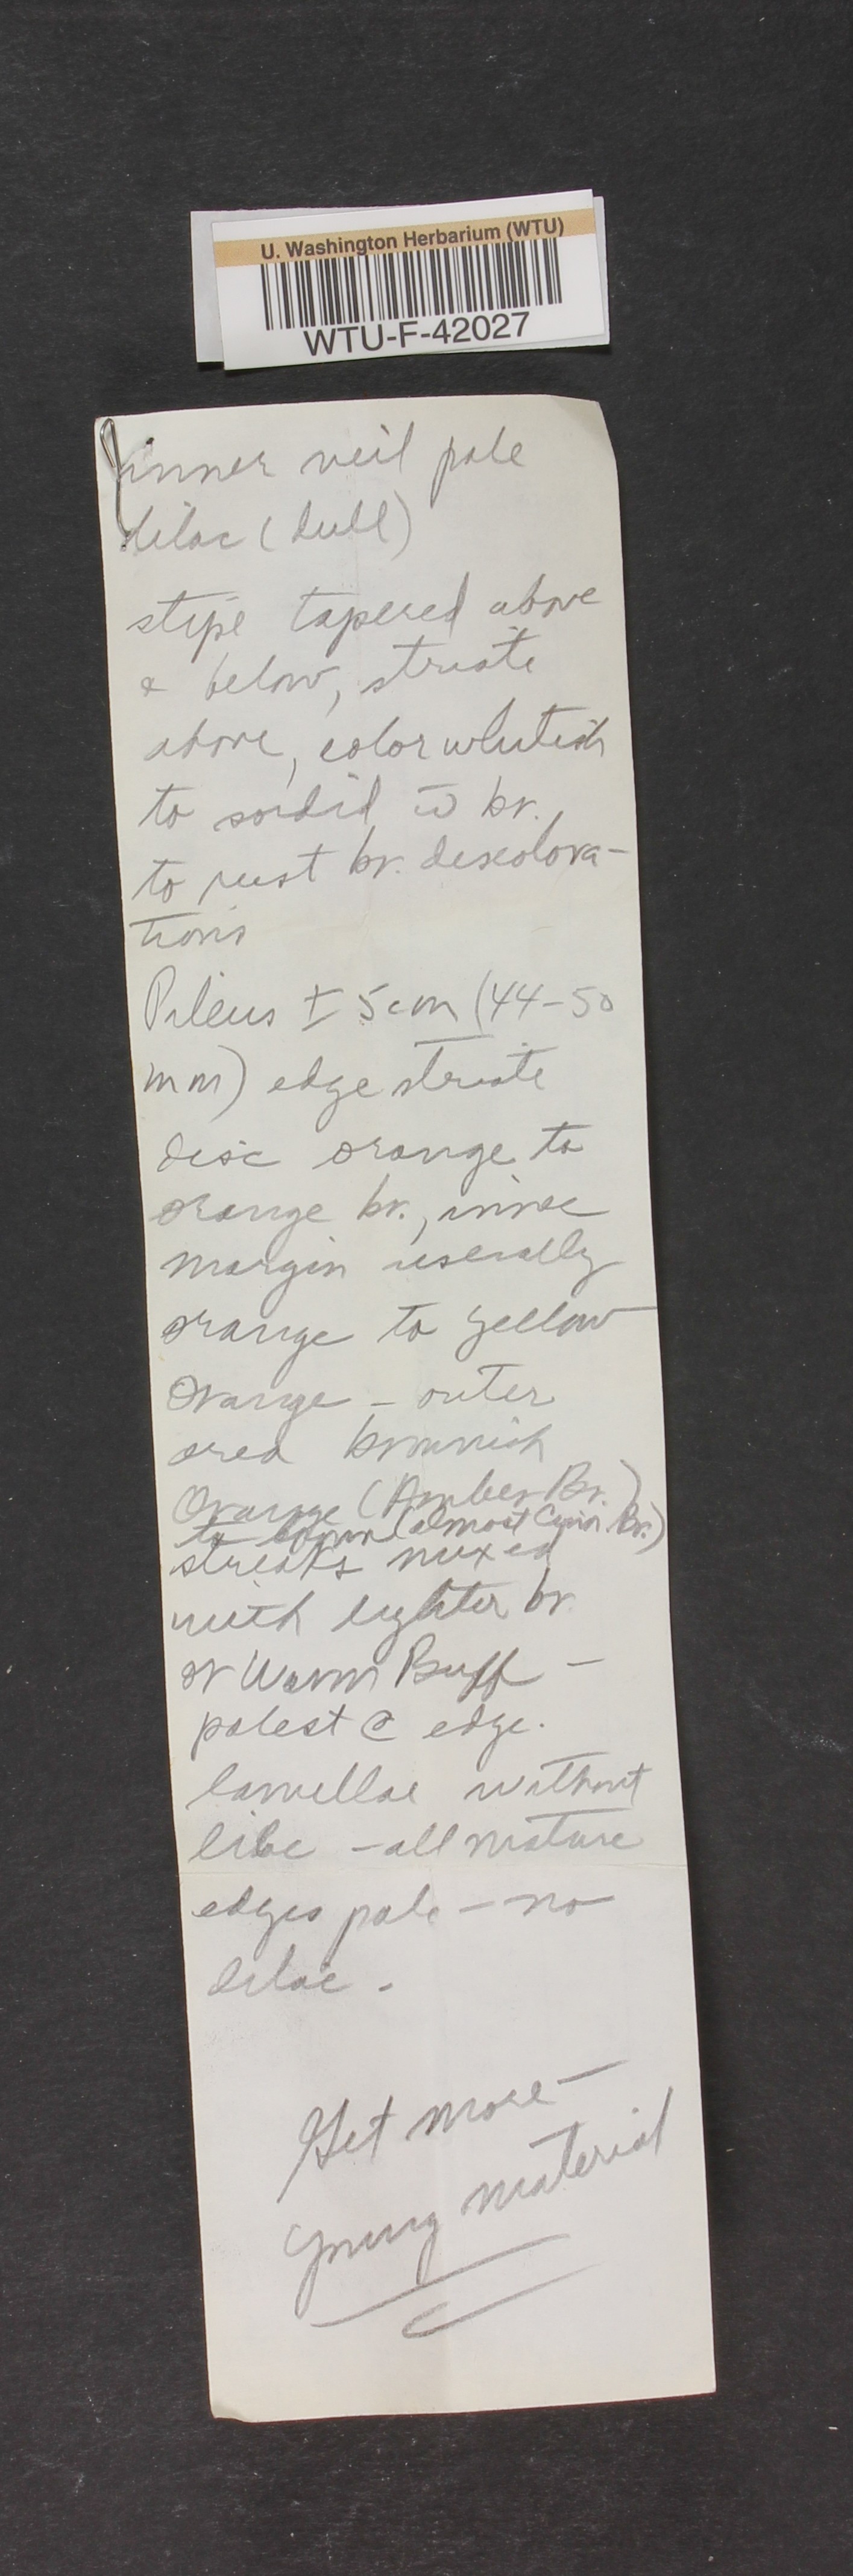 U. Washington Herbarium (WTU)
WTU-F-42027
inner veil pale
lilac (dull)
stipe tapered above
& below, striate
above, color whitish
to sordid w̄ br.
to rust br. discolora-
tions
Pileus ± 5 cm (44-50
mm) edge striate
disc orange to
orange br., inner
margin usually
orange to yellow
orange - outer
area brownish
Orange (Amber Br.)
to brown (almost Cinn. Br.)
streaks mixed
with lighter br
or Warm Buff -
palest @ edge.
lamellae without
lilac - all mature
edges pale - no
lilac -
Get more -
young material